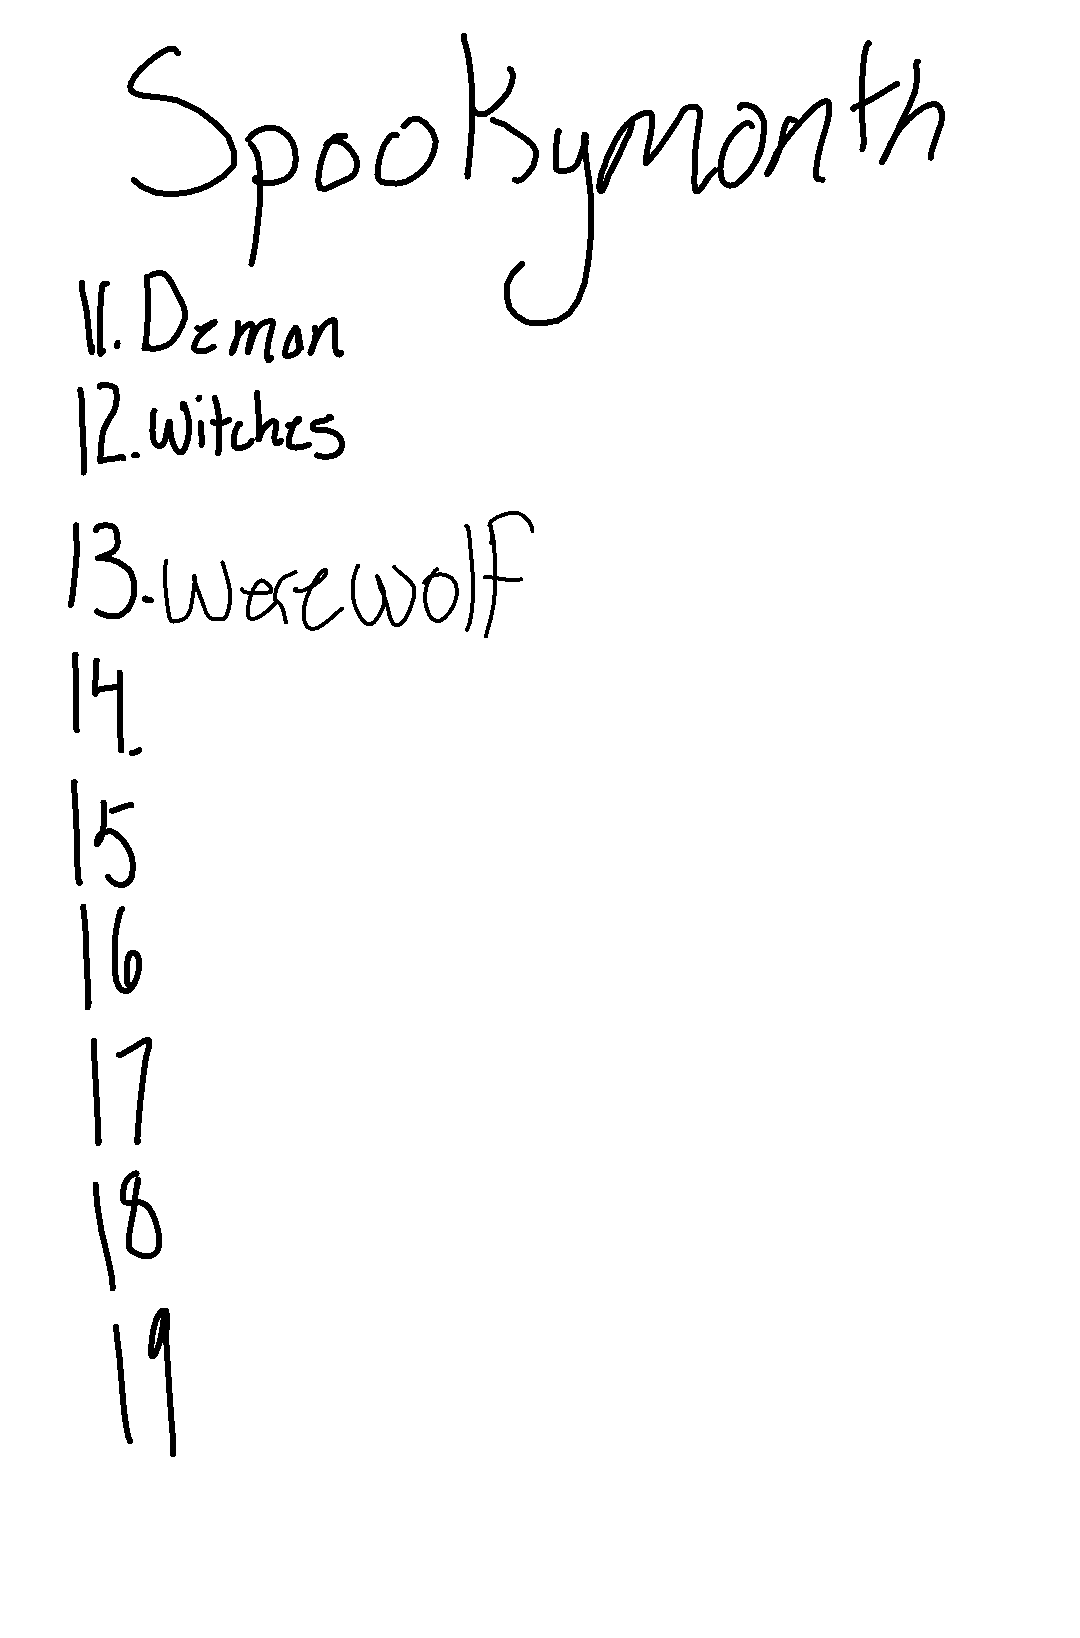 Spookymonth
11. Demon
12. Witches
13. Werewolf
14.
15
16
17
18
19